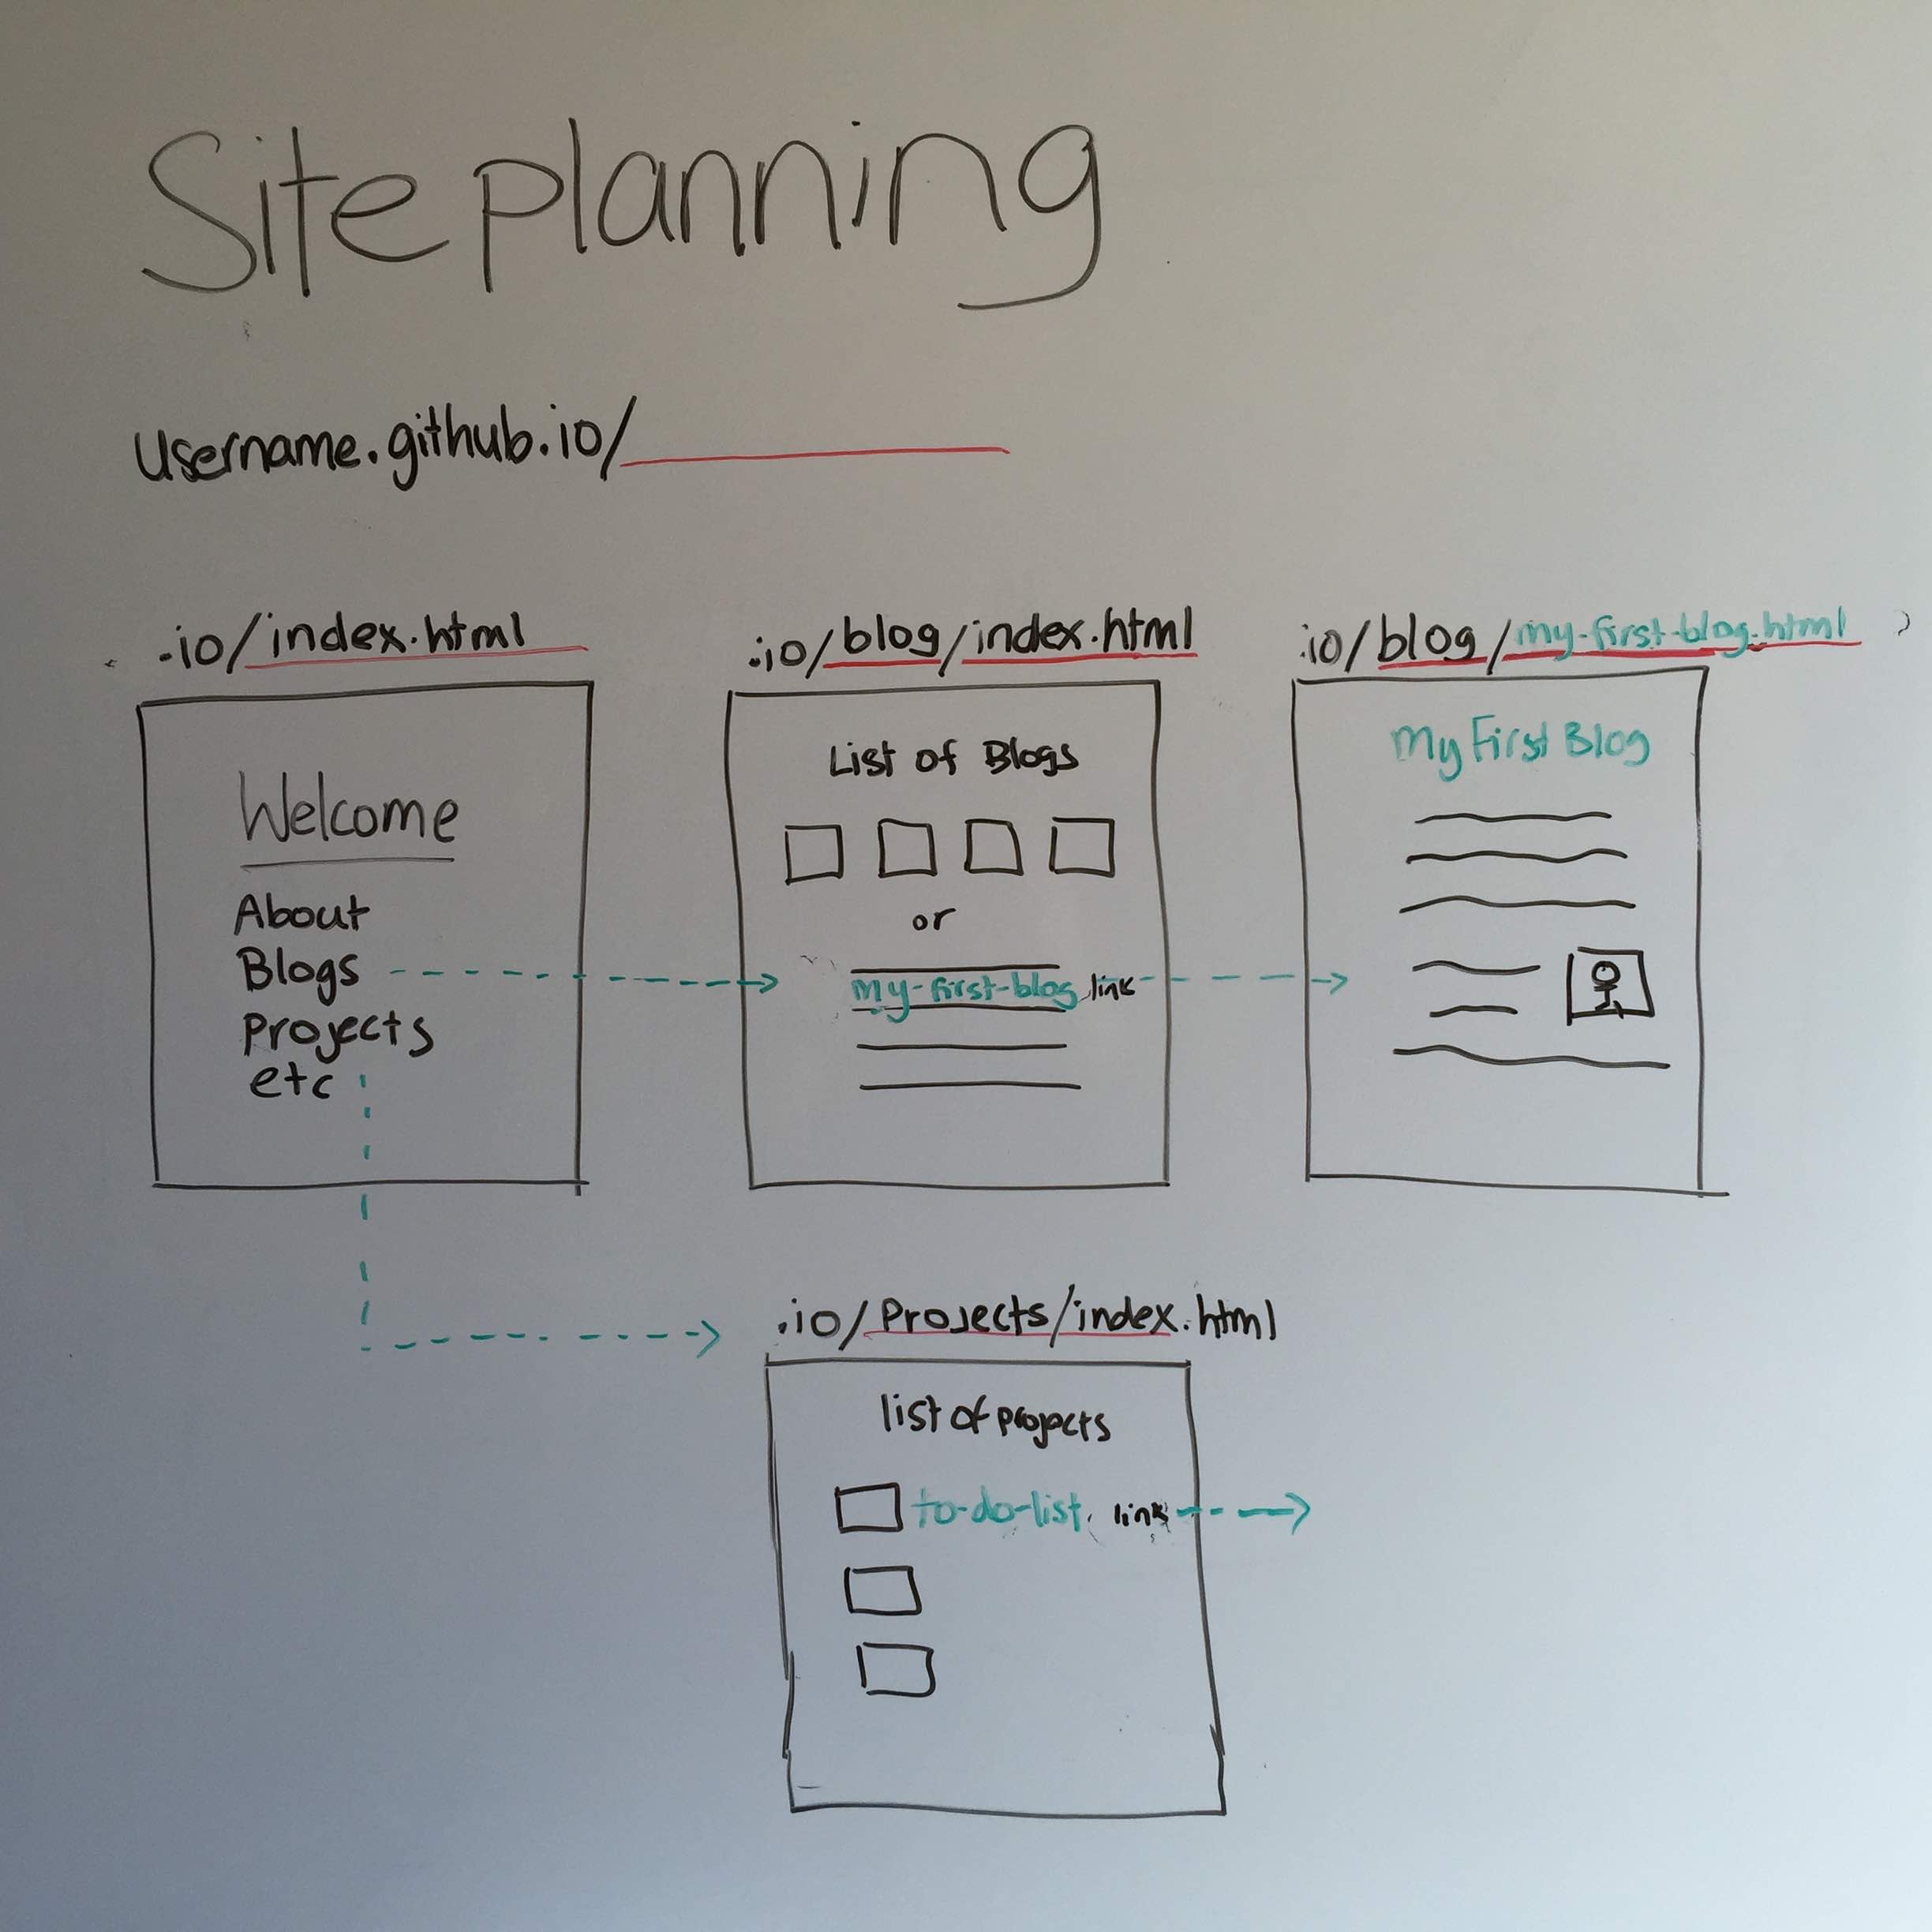 Site planning
Username.github.io/
.io/index.html
Welcome
About
Blogs
Projects
etc
.io/blog/index.html
List of Blogs
or
my-first-blog link
.io/blog/my-first-blog.html
My First Blog
.io/Projects/index.html
list of projects
to-do-list. link